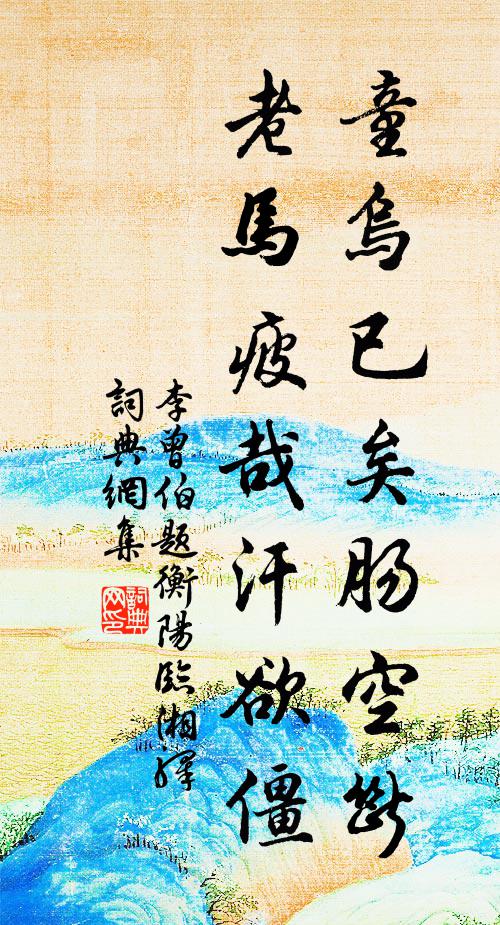 童烏已矣肠空断
老馬疲哉汗欲僵
李曾伯題衡陽臨湘驛
詞典網集
詞典網印